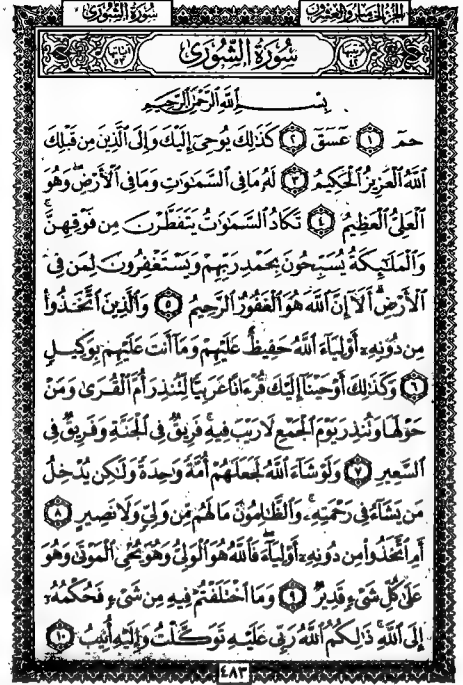 سُورَةُ الشُّورَىٰ الجُزْءُ الخَامِسُ وَالعِشْرُونَ
ترتيبها ٤٢ سُورَةُ الشُّورَىٰ آياتها ٥٣
بِسْمِ اللَّهِ الرَّحْمَٰنِ الرَّحِيمِ
حمٓ ١ عٓسٓقٓ ٢ كَذَٰلِكَ يُوحِىٓ إِلَيْكَ وَإِلَى ٱلَّذِينَ مِن قَبْلِكَ
ٱللَّهُ ٱلْعَزِيزُ ٱلْحَكِيمُ ٣ لَهُۥ مَا فِى ٱلسَّمَٰوَٰتِ وَمَا فِى ٱلْأَرْضِ ۖ وَهُوَ
ٱلْعَلِىُّ ٱلْعَظِيمُ ٤ تَكَادُ ٱلسَّمَٰوَٰتُ يَتَفَطَّرْنَ مِن فَوْقِهِنَّ ۚ
وَٱلْمَلَٰٓئِكَةُ يُسَبِّحُونَ بِحَمْدِ رَبِّهِمْ وَيَسْتَغْفِرُونَ لِمَن فِى
ٱلْأَرْضِ ۗ أَلَآ إِنَّ ٱللَّهَ هُوَ ٱلْغَفُورُ ٱلرَّحِيمُ ٥ وَٱلَّذِينَ ٱتَّخَذُوا۟
مِن دُونِهِۦٓ أَوْلِيَآءَ ٱللَّهُ حَفِيظٌ عَلَيْهِمْ وَمَآ أَنتَ عَلَيْهِم بِوَكِيلٍ
٦ وَكَذَٰلِكَ أَوْحَيْنَآ إِلَيْكَ قُرْءَانًا عَرَبِيًّا لِّتُنذِرَ أُمَّ ٱلْقُرَىٰ وَمَنْ
حَوْلَهَا وَتُنذِرَ يَوْمَ ٱلْجَمْعِ لَا رَيْبَ فِيهِ ۚ فَرِيقٌ فِى ٱلْجَنَّةِ وَفَرِيقٌ فِى
ٱلسَّعِيرِ ٧ وَلَوْ شَآءَ ٱللَّهُ لَجَعَلَهُمْ أُمَّةً وَٰحِدَةً وَلَٰكِن يُدْخِلُ
مَن يَشَآءُ فِى رَحْمَتِهِۦ ۚ وَٱلظَّٰلِمُونَ مَا لَهُم مِّن وَلِىٍّ وَلَا نَصِيرٍ ٨
أَمِ ٱتَّخَذُوا۟ مِن دُونِهِۦٓ أَوْلِيَآءَ ۖ فَٱللَّهُ هُوَ ٱلْوَلِىُّ وَهُوَ يُحْىِ ٱلْمَوْتَىٰ وَهُوَ
عَلَىٰ كُلِّ شَىْءٍ قَدِيرٌ ٩ وَمَا ٱخْتَلَفْتُمْ فِيهِ مِن شَىْءٍ فَحُكْمُهُۥٓ
إِلَى ٱللَّهِ ۚ ذَٰلِكُمُ ٱللَّهُ رَبِّى عَلَيْهِ تَوَكَّلْتُ وَإِلَيْهِ أُنِيبُ ١٠
٤٨٣